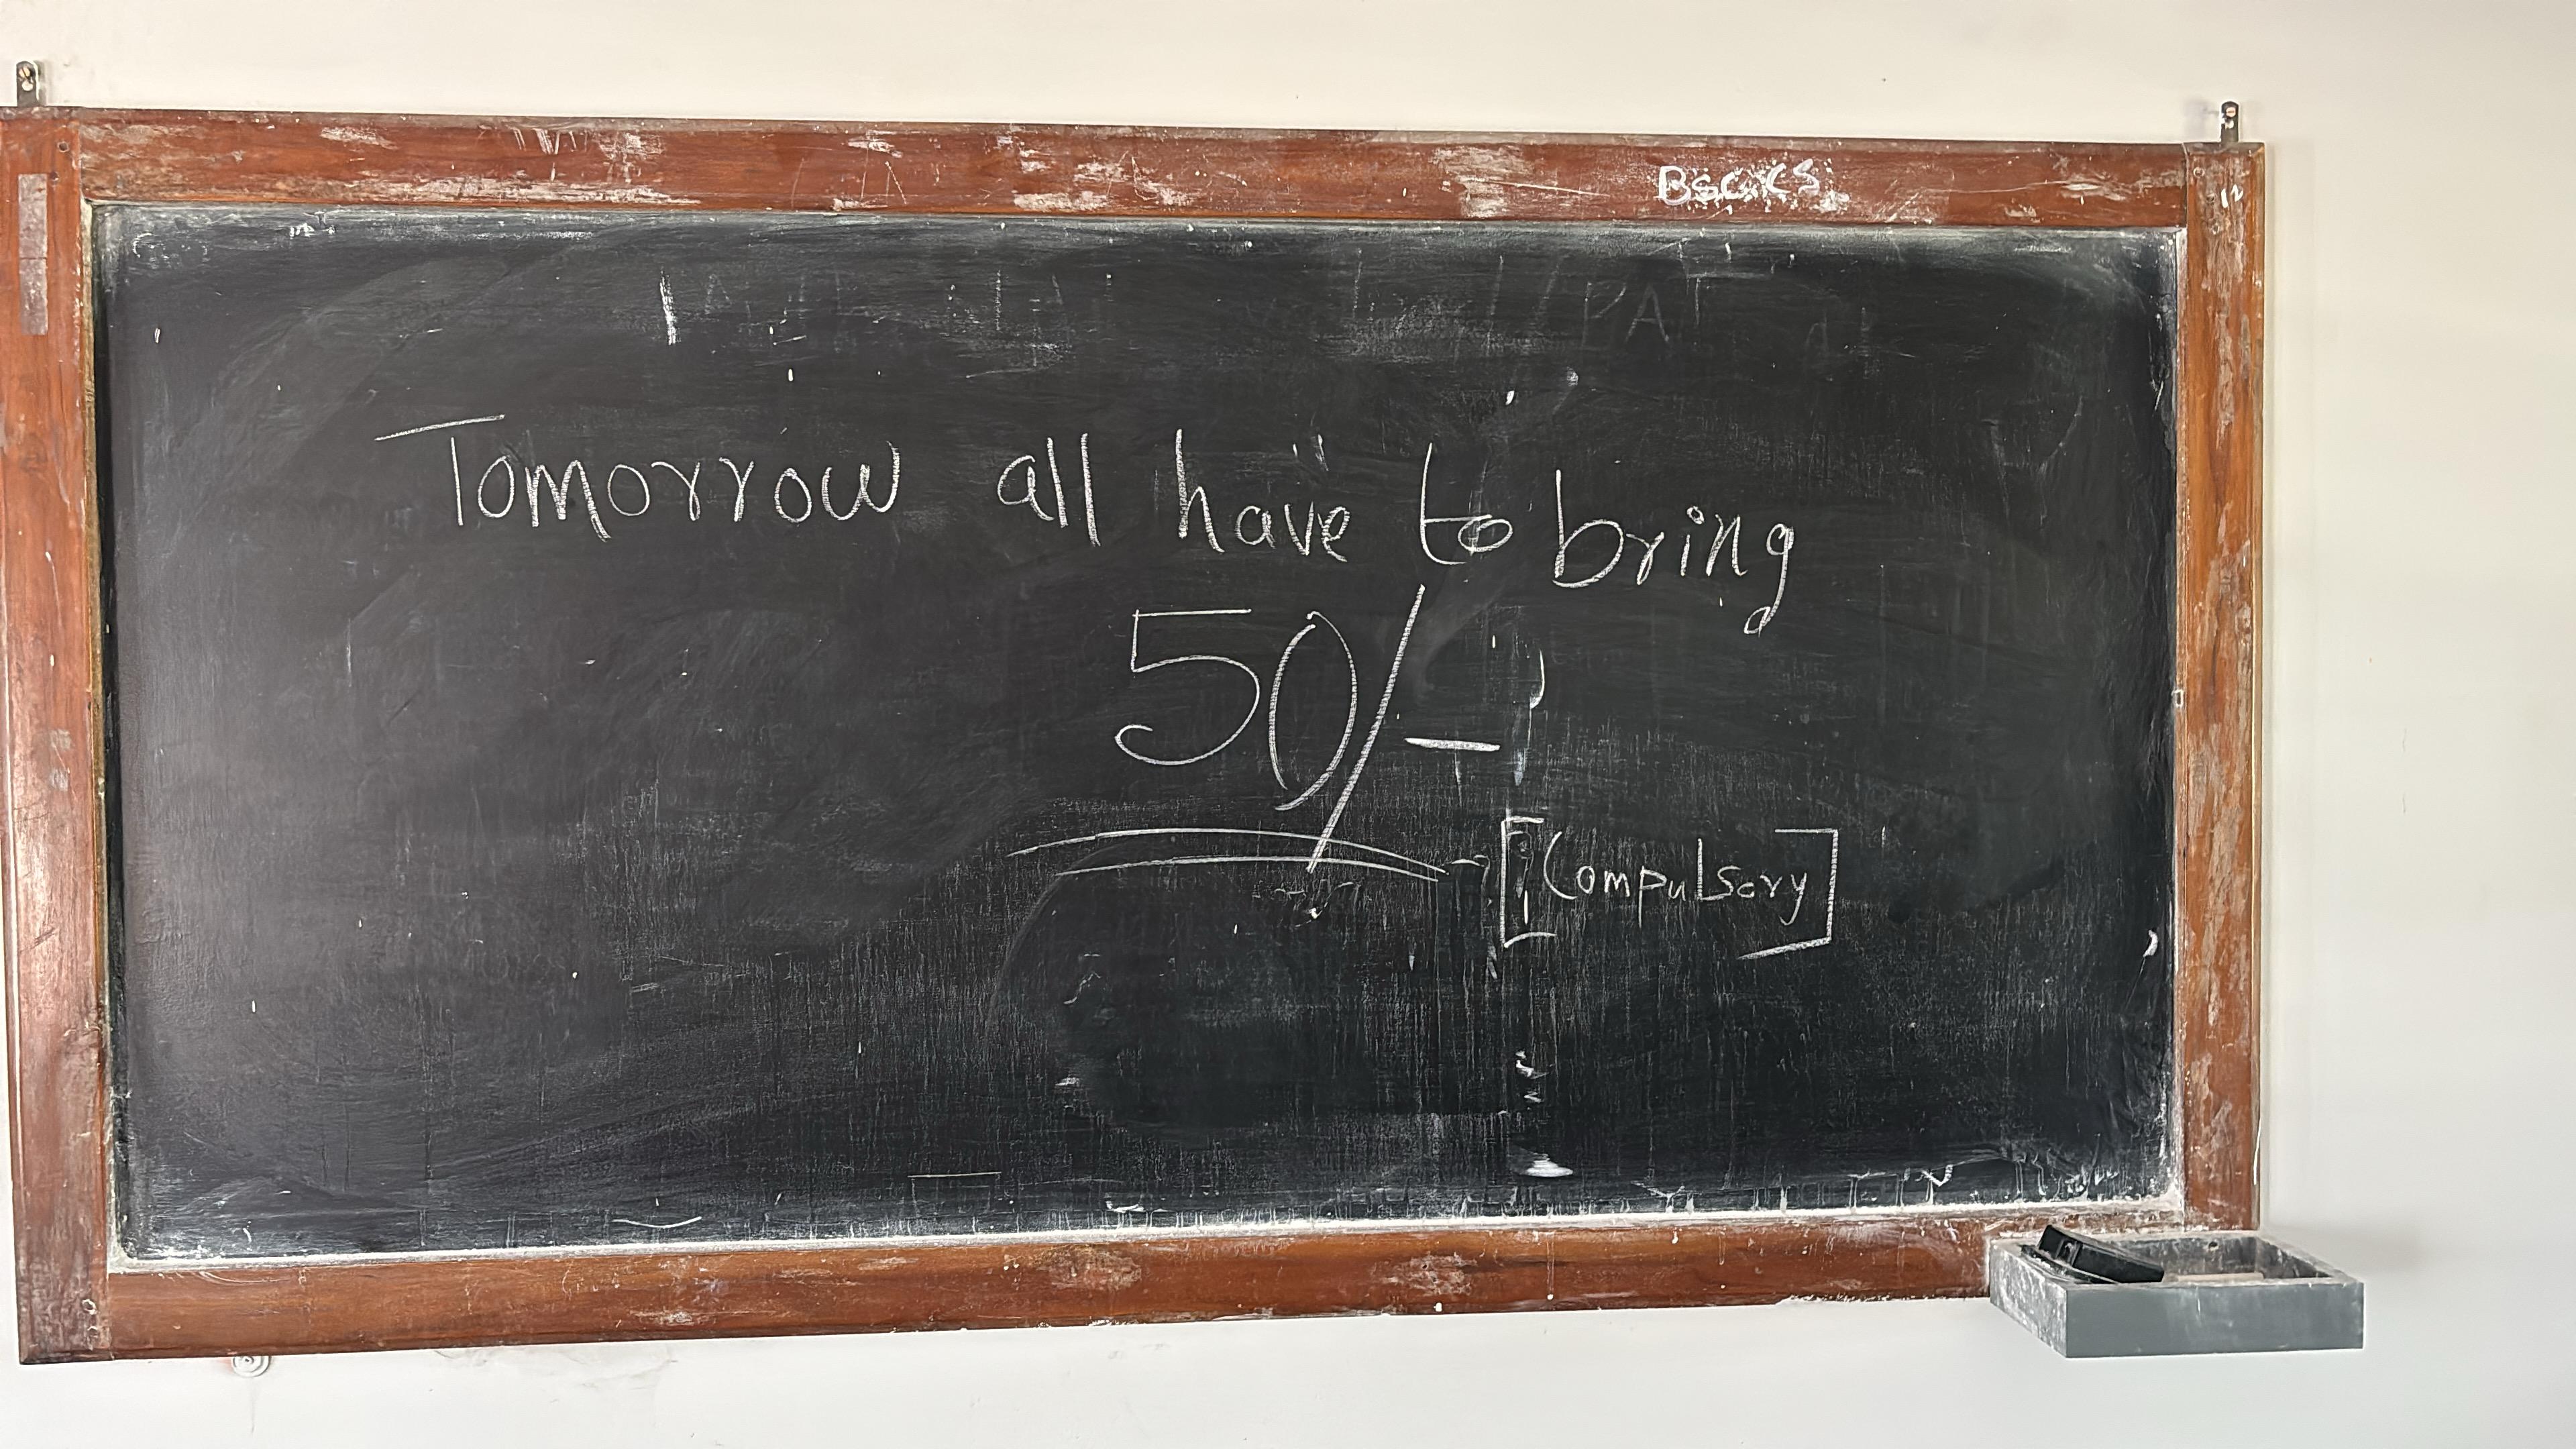 BSC.CS
Tomorrow all have to bring
50/-
[Compulsory]